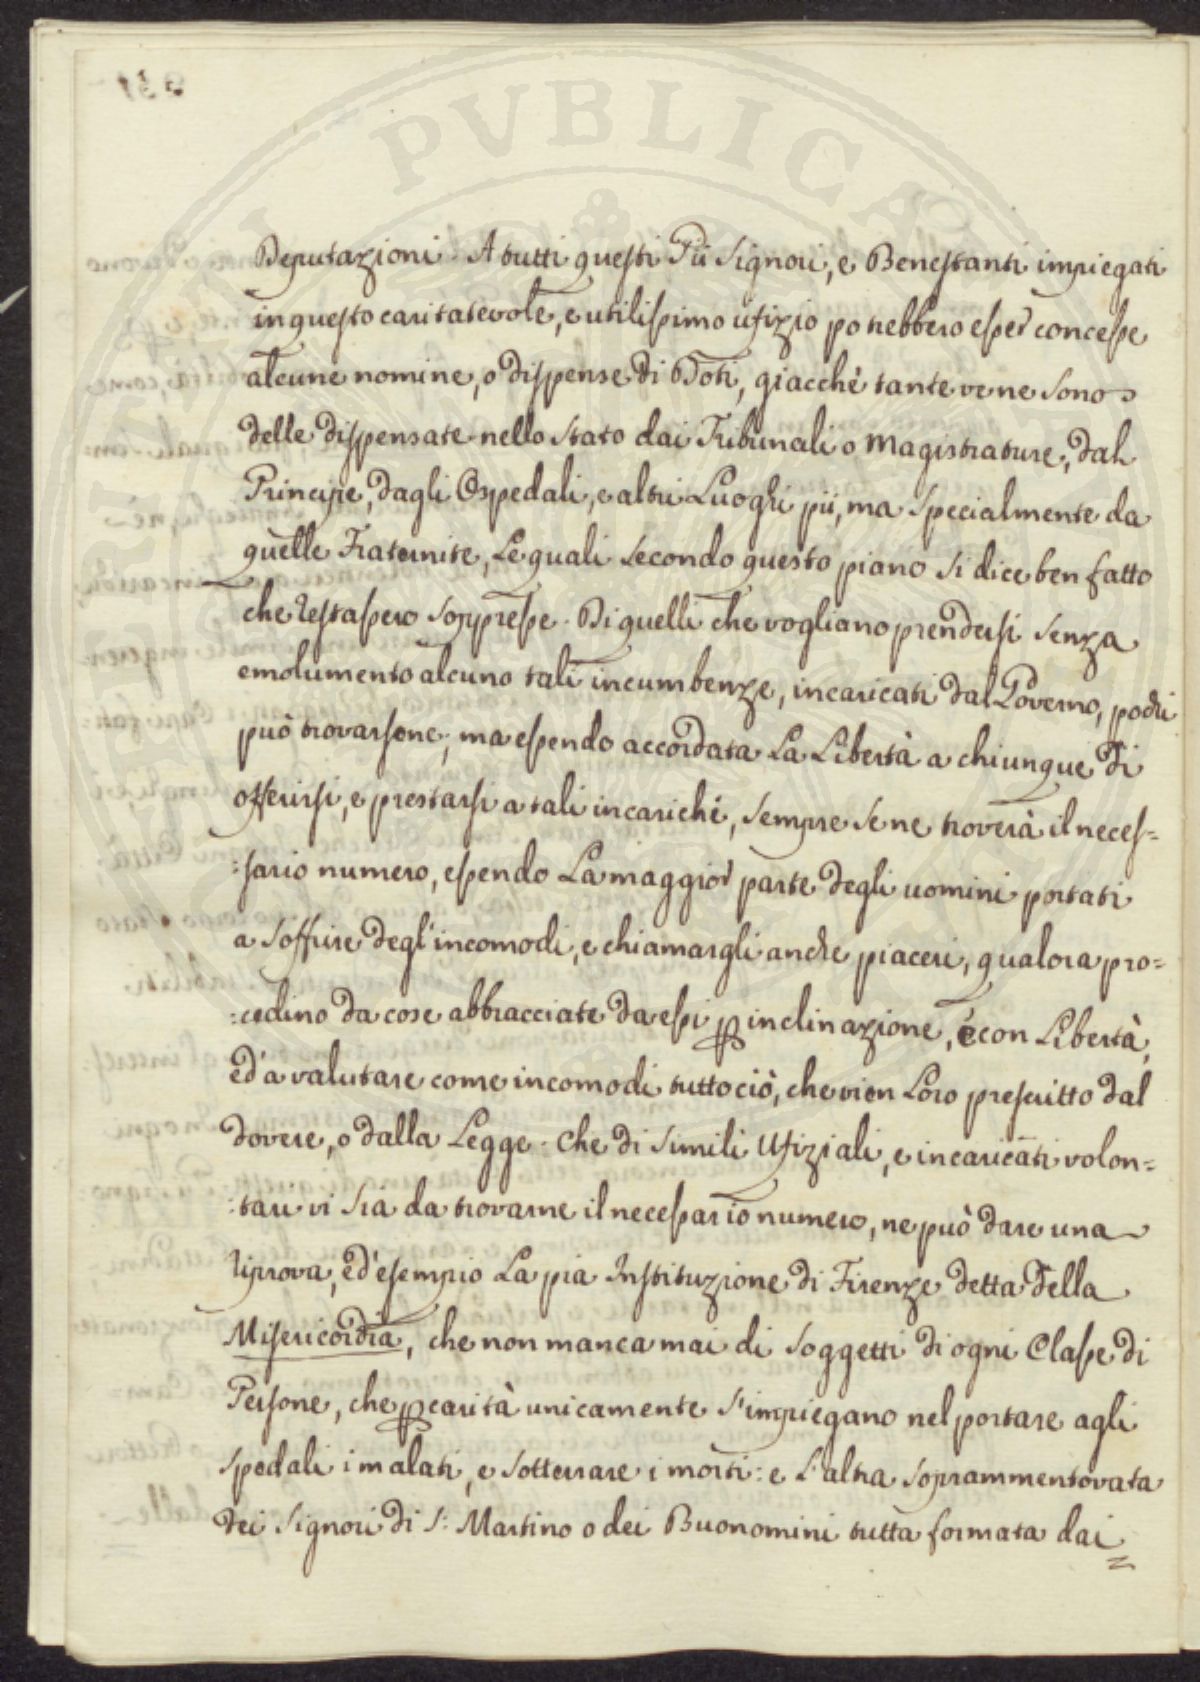 Deputazioni. A tutti questi Pii Signori, e Benestanti impiegati
in questo caritatevole, e utilissimo ufizio potrebbero esser concesse
alcune nomine, o dispense di Doti, giacchè tante ve ne sono
delle dispensate nello Stato dai Tribunali o Magistrature, dal
Principe, dagli Ospedali, e altri Luoghi pii, ma specialmente da
quelle Fraternite, Le quali secondo questo piano si dice ben fatto
che restassero soppresse. Di quelli che vogliano prendersi senza
emolumento alcuno tali incumbenze, incaricati dal Governo, pochi
può trovarsene; ma essendo accordata La Libertà a chiunque di
offerirsi, e prestarsi a tali incariche, sempre se ne troverà il neces=
:sario numero, essendo La maggior parte degli uomini portati
a soffrire degl'incomodi, e chiamargli anche piaceri, qualora pro=
:cedino da cose abbracciate da essi p inclinazione, e con Libertà,
ed a valutare come incomodi tutto ciò, che vien Loro prescritto dal
dovere, o dalla Legge. Che di simili Ufiziali, e incaricati volon=
:tari vi sia da trovarne il necessario numero, ne può dare una
riprova, ed'esempio La pia Instituzione di Firenze detta della
Misericordia, che non manca mai di soggetti di ogni Classe di
Persone, che p carità unicamente s'impiegano nel portare agli
spedali i malati, e sotterrare i morti: e L'altra soprammentovata
dei Signori di S: Martino o dei Buonomini tutta formata dai
PVBLICA